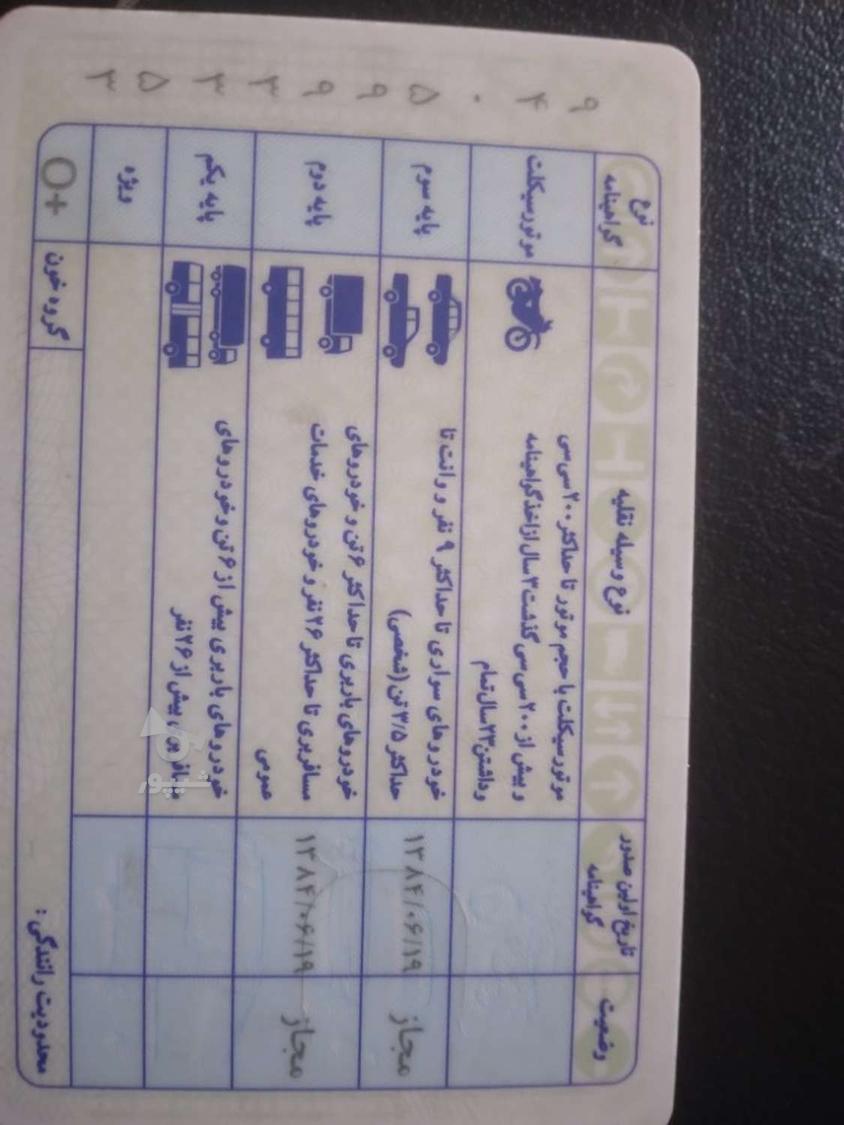 وضعیت
تاریخ اولین صدور گواهینامه
نوع وسیله نقلیه
نوع گواهینامه
موتورسیکلت با حجم موتور تا حداکثر ۲۰۰ سی سی
و بیش از ۲۰۰ سی سی گذشت ۳ سال از اخذ گواهینامه
و داشتن ۲۳ سال تمام
موتورسیکلت
مجاز
۱۳۸۴/۰۶/۱۹
خودروهای سواری تا حداکثر ۹ نفر و وانت تا
حداکثر ۳/۵ تن (شخصی)
پایه سوم
مجاز
۱۳۸۴/۰۶/۱۹
خودروهای باربری تا حداکثر ۶ تن و خودروهای
مسافربری تا حداکثر ۲۶ نفر و خودروهای خدمات
عمومی
پایه دوم
خودروهای باربری بیش از ۶ تن و خودروهای
مسافربری بیش از ۲۶ نفر
پایه یکم
ویژه
محدودیت رانندگی :
گروه خون
O+
۹۴۰۵۹۹۳۳۵۳
شیپور